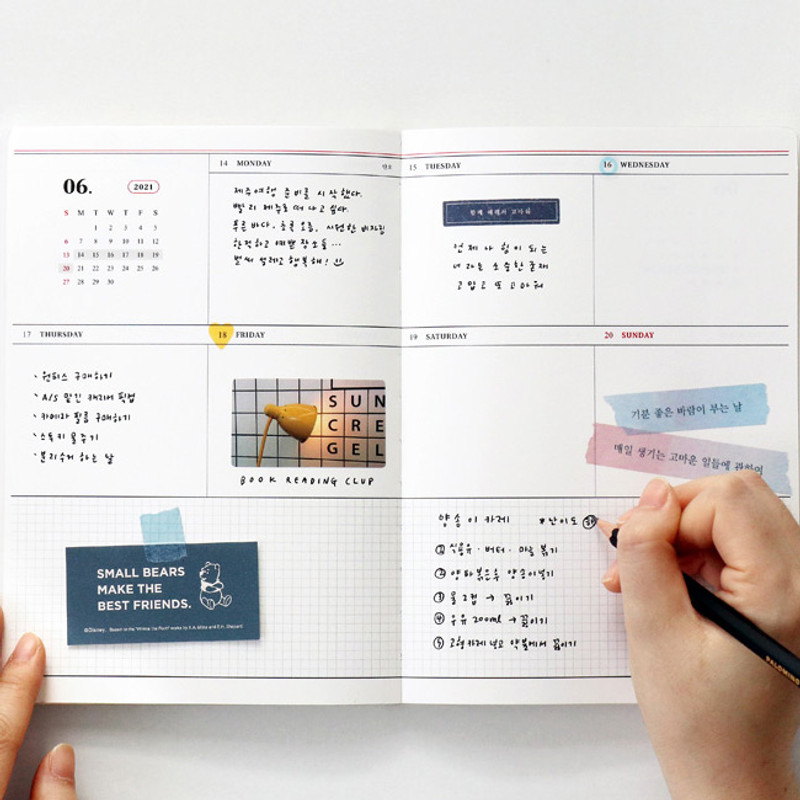 06. 2021
S M T W T F S
1 2 3 4 5
6 7 8 9 10 11 12
13 14 15 16 17 18 19
20 21 22 23 24 25 26
27 28 29 30
14 MONDAY
제주여행 준비를 시작했다.
빨리 제주로 떠나고 싶다.
푸른 바다. 초록 오름. 시원한 비자림
한적하고 예쁜 장소들…
벌써 설레고 행복해!
15 TUESDAY
함께 해줘서 고마워
언제나 힘이 되는
너라는 소중한 존재
고맙고 또 고마워
16 WEDNESDAY
17 THURSDAY
· 원피스 구매하기
· A/S 맡긴 캐리어 픽업
· 카메라 필름 구매하기
· 스투키 물주기
· 분리수거 하는 날
18 FRIDAY
SUN
CRE
GEL
BOOK READING CLUB
19 SATURDAY
20 SUNDAY
기분 좋은 바람이 부는 날
매일 생기는 고마운 일들에 관하여
SMALL BEARS
MAKE THE
BEST FRIENDS.
©Disney. Based on the "Winnie the Pooh" works by A.A. Milne and E.H. Shepard.
양송이 카레 *난이도 하
① 식용유 · 버터 · 마늘 볶기
② 양파 볶은후 양송이넣기
③ 물 2컵 → 끓이기
④ 우유 200ml → 끓이기
⑤ 고형카레 넣고 약불에서 끓이기
PALOMINO